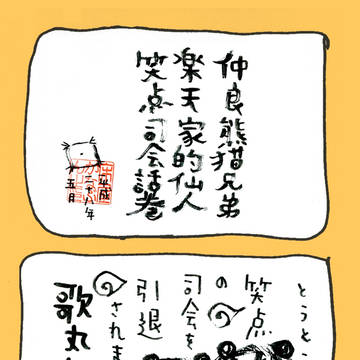 仲良熊猫兄弟
楽天家的仙人
笑点司会話巻
平成
二十八年
五月
とうとう
笑点
の
司会を
引退
されま
歌丸